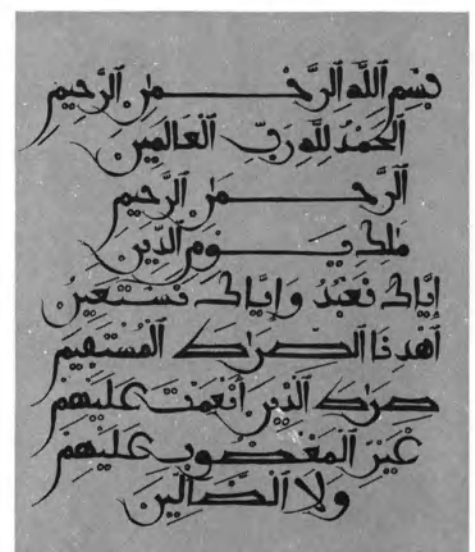 بِسْمِ اللَّهِ الرَّحْمٰنِ الرَّحِيمِ
الْحَمْدُ لِلَّهِ رَبِّ الْعَالَمِينَ
الرَّحْمٰنِ الرَّحِيمِ
مَلِكِ يَوْمِ الدِّينِ
إِيَّاكَ نَعْبُدُ وَإِيَّاكَ نَسْتَعِينُ
اهْدِنَا الصِّرَاطَ الْمُسْتَقِيمَ
صِرَاطَ الَّذِينَ أَنْعَمْتَ عَلَيْهِمْ
غَيْرِ الْمَغْضُوبِ عَلَيْهِمْ
وَلَا الضَّالِّينَ